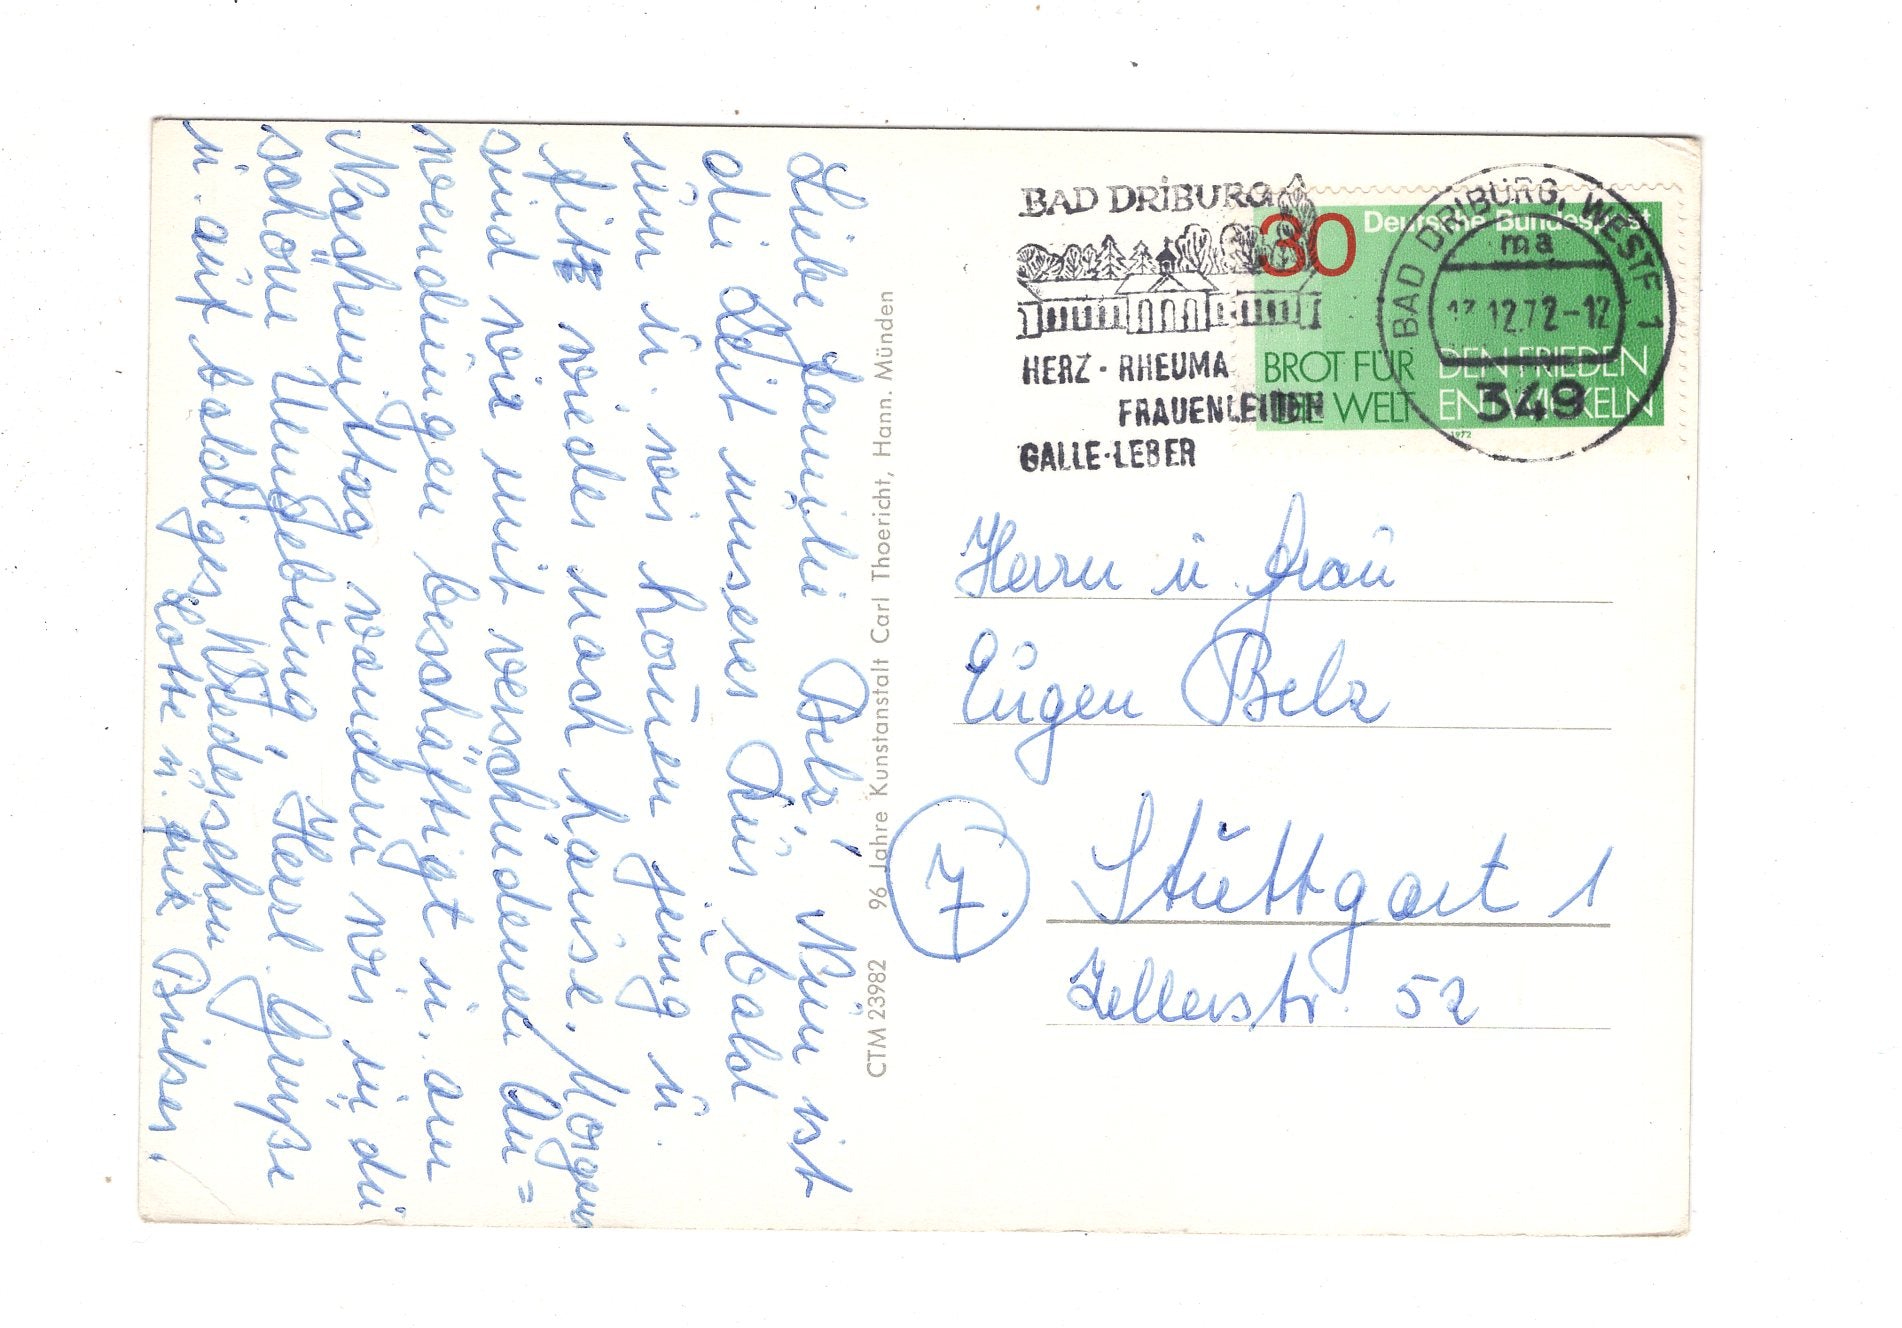 Liebe Familie Belz, Nun ist
die Zeit unserer Kur bald
um u. wir kommen jung u.
fit wieder nach hause. Morgens
sind wir mit verschiedenen An=
wendungen beschäftigt u. am
Nachmittag wandern wir in die
schöne Umgebung. Herzl. Grüße
u. auf baldiges Wiedersehen
Lotte u.
CTM 23982 96 Jahre Kunstanstalt Carl Thoericht, Hann. Münden
BAD DRIBURG
HERZ - RHEUMA
FRAUENLEIDEN
GALLE-LEBER
30 Deutsche Bundespost
BROT FÜR DEN FRIEDEN
DIE WELT ENTWICKELN
1972
BAD DRIBURG, WESTF 1
ma
13.12.72-12
349
Herrn u. Frau
Eugen Belz
7
Stuttgart 1
Zellerstr. 52